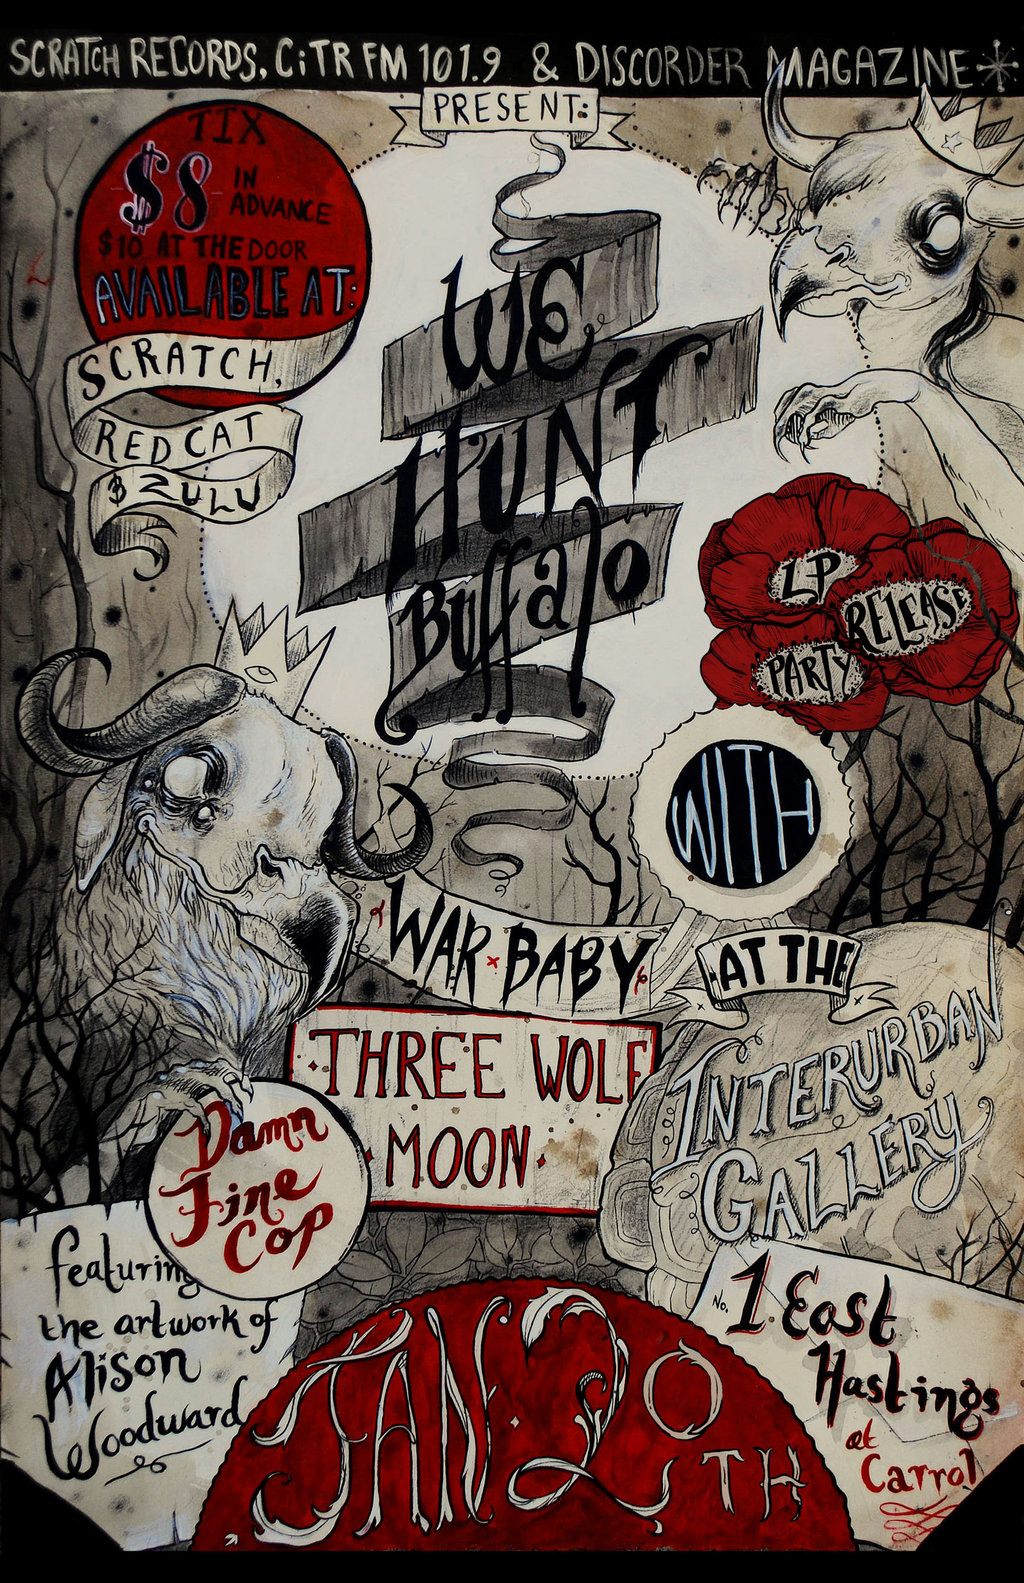 SCRATCH RECORDS, CiTR FM 101.9 & DISCORDER MAGAZINE
PRESENT:
TIX
$8 IN ADVANCE
$10 AT THE DOOR
AVAILABLE AT:
SCRATCH,
RED CAT
& ZULU
WE
HUNT
Buffalo
LP
RELEASE
PARTY
WITH
WAR BABY
THREE WOLF
MOON
Damn
Fine
Cop
AT THE
INTERURBAN
GALLERY
No. 1 East
Hastings
at
Carrol
featuring
the artwork of
Alison
Woodward
JAN. 20TH